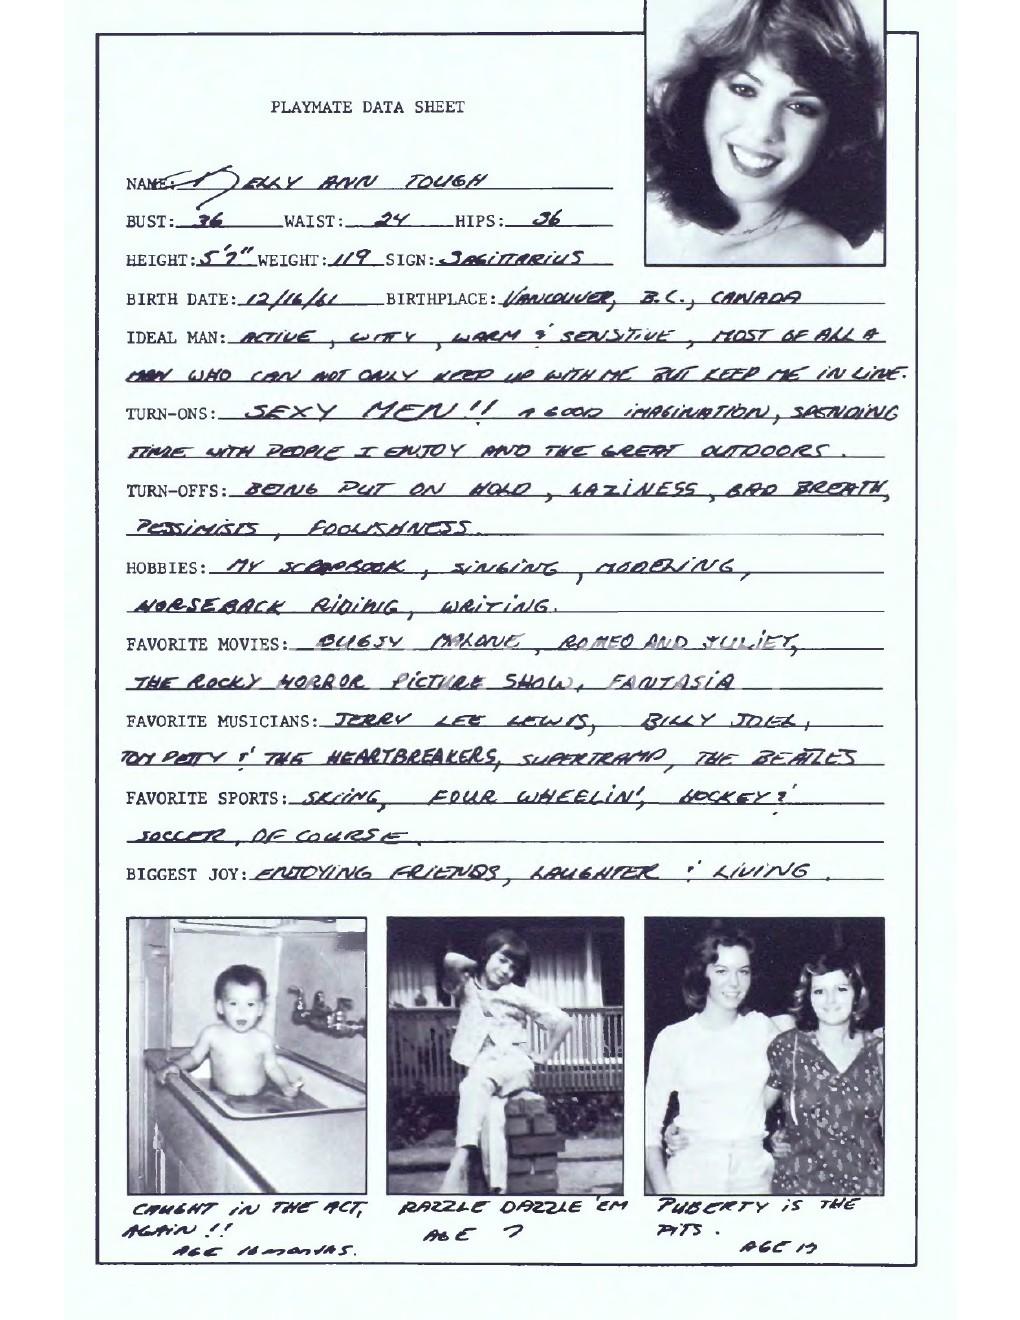 PLAYMATE DATA SHEET
NAME: KELLY ANN TOUGH
BUST: 36 WAIST: 24 HIPS: 36
HEIGHT: 5'7" WEIGHT: 119 SIGN: SAGITTARIUS
BIRTH DATE: 12/16/61 BIRTHPLACE: VANCOUVER, B.C., CANADA
IDEAL MAN: ACTIVE, WITTY, WARM & SENSITIVE, MOST OF ALL A
MAN WHO CAN NOT ONLY KEEP UP WITH ME BUT KEEP ME IN LINE.
TURN-ONS: SEXY MEN!! A GOOD IMAGINATION, SPENDING
TIME WITH PEOPLE I ENJOY AND THE GREAT OUTDOORS.
TURN-OFFS: BEING PUT ON HOLD, LAZINESS, BAD BREATH,
PESSIMISTS, FOOLISHNESS.
HOBBIES: MY SCRAPBOOK, SINGING, MODELING,
HORSEBACK RIDING, WRITING.
FAVORITE MOVIES: BUGSY MALONE, ROMEO AND JULIET,
THE ROCKY HORROR PICTURE SHOW, FANTASIA
FAVORITE MUSICIANS: JERRY LEE LEWIS, BILLY JOEL,
TOM PETTY & THE HEARTBREAKERS, SUPERTRAMP, THE BEATLES
FAVORITE SPORTS: SKIING, FOUR WHEELIN', HOCKEY &
SOCCER, OF COURSE.
BIGGEST JOY: ENJOYING FRIENDS, LAUGHTER & LIVING.
CAUGHT IN THE ACT,
AGAIN!!
AGE MONTHS.
RAZZLE DAZZLE 'EM
AGE 7
PUBERTY IS THE
PITS.
AGE